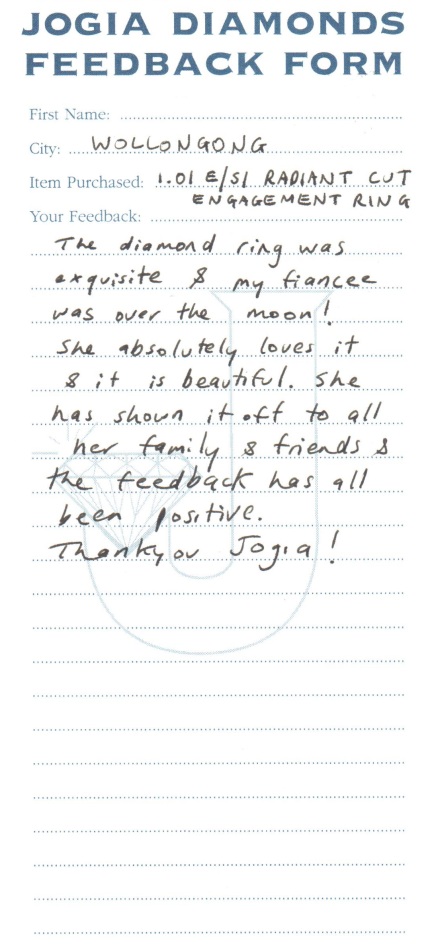 JOGIA DIAMONDS
FEEDBACK FORM
First Name:
City: WOLLONGONG
Item Purchased: 1.01 E/SI RADIANT CUT
ENGAGEMENT RING
Your Feedback:
The diamond ring was
exquisite & my fiancee
was over the moon!
She absolutely loves it
& it is beautiful. She
has shown it off to all
her family & friends &
the feedback has all
been positive.
Thankyou Jogia!